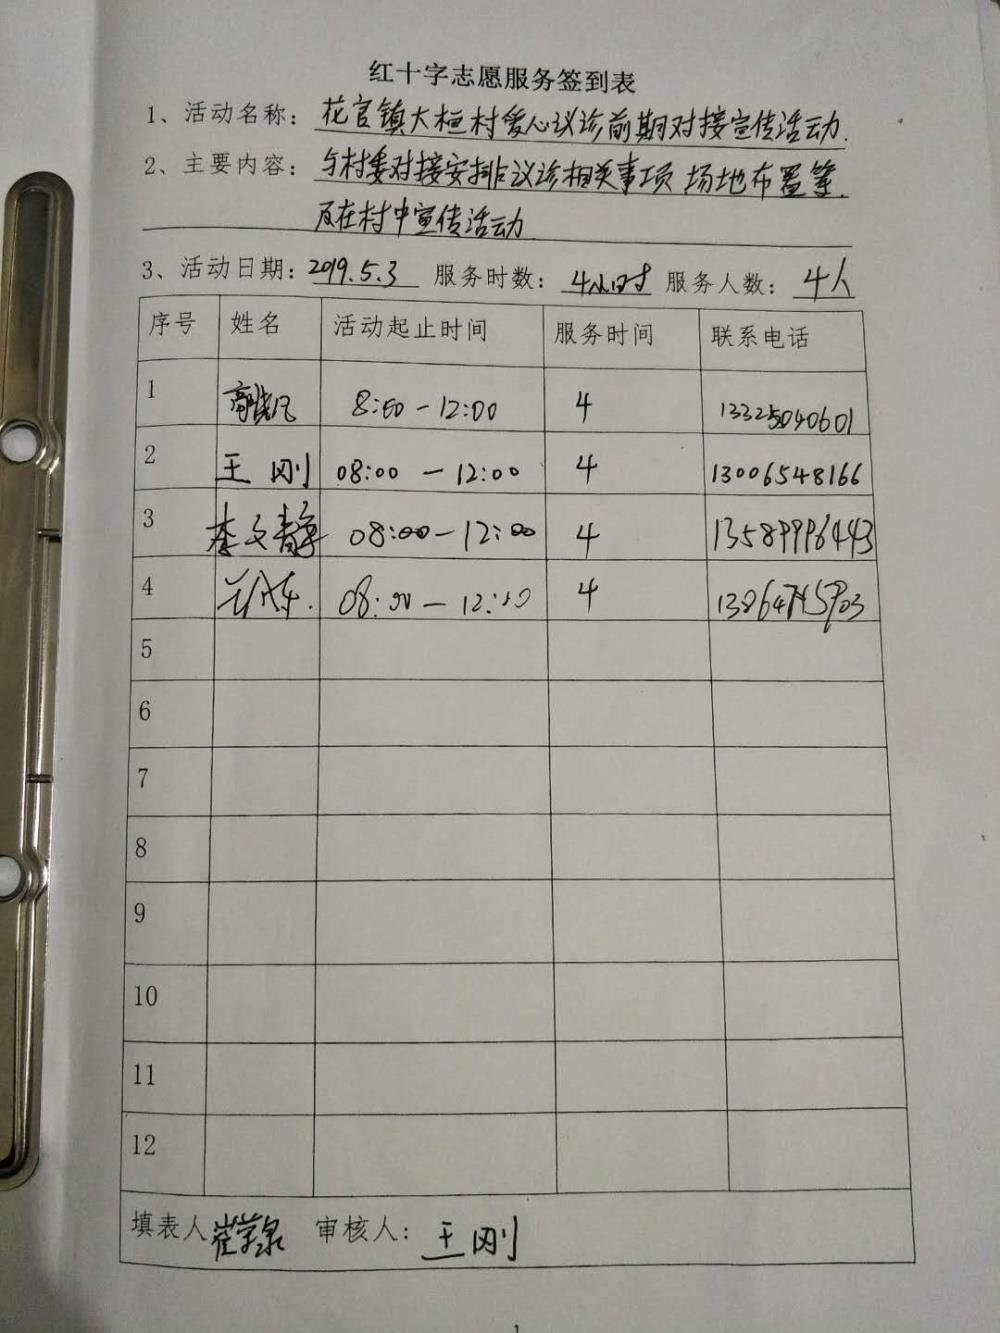 红十字志愿服务签到表
1、活动名称：花官镇大桓村爱心议诊前期对接宣传活动.
2、主要内容：与村委对接安排议诊相关事项 场地布置等.
及在村中宣传活动
3、活动日期：2019.5.3 服务时数：4小时 服务人数：4人
序号 姓名 活动起止时间 服务时间 联系电话
1 8:00-12:00 4 13325040601
2 王刚 08:00-12:00 4 13006548166
3 李文静 08:00-12:00 4 13589996443
4 08:00-12:00 4
5
6
7
8
9
10
11
12
填表人 审核人：王刚
1